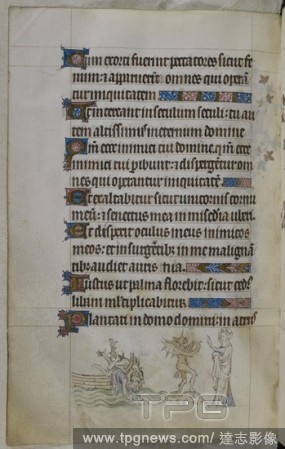 Cum exorti fuerint peccatores sicut fe
num: & apparuerint omnes qui operan
tur iniquitatem
Ut intereant in seculum seculi: tu au
tem altissimus in eternum domine
Qm ecce inimici tui domine qm ecce
inimici tui peribunt: & dispergentur om
nes qui operantur iniquitatem
Et exaltabitur sicut unicornis cornu
meum: & senectus mea in miscdia uberi
Et despexit oculus meus inimicos
meos: et in surgentibus in me malignan
tibus audiet auris mea
Iustus ut palma florebit: sicut cedrus
libani multiplicabitur
Plantati in domo domini: in atriis
TPG
www.tpgnews.com / 達志影像